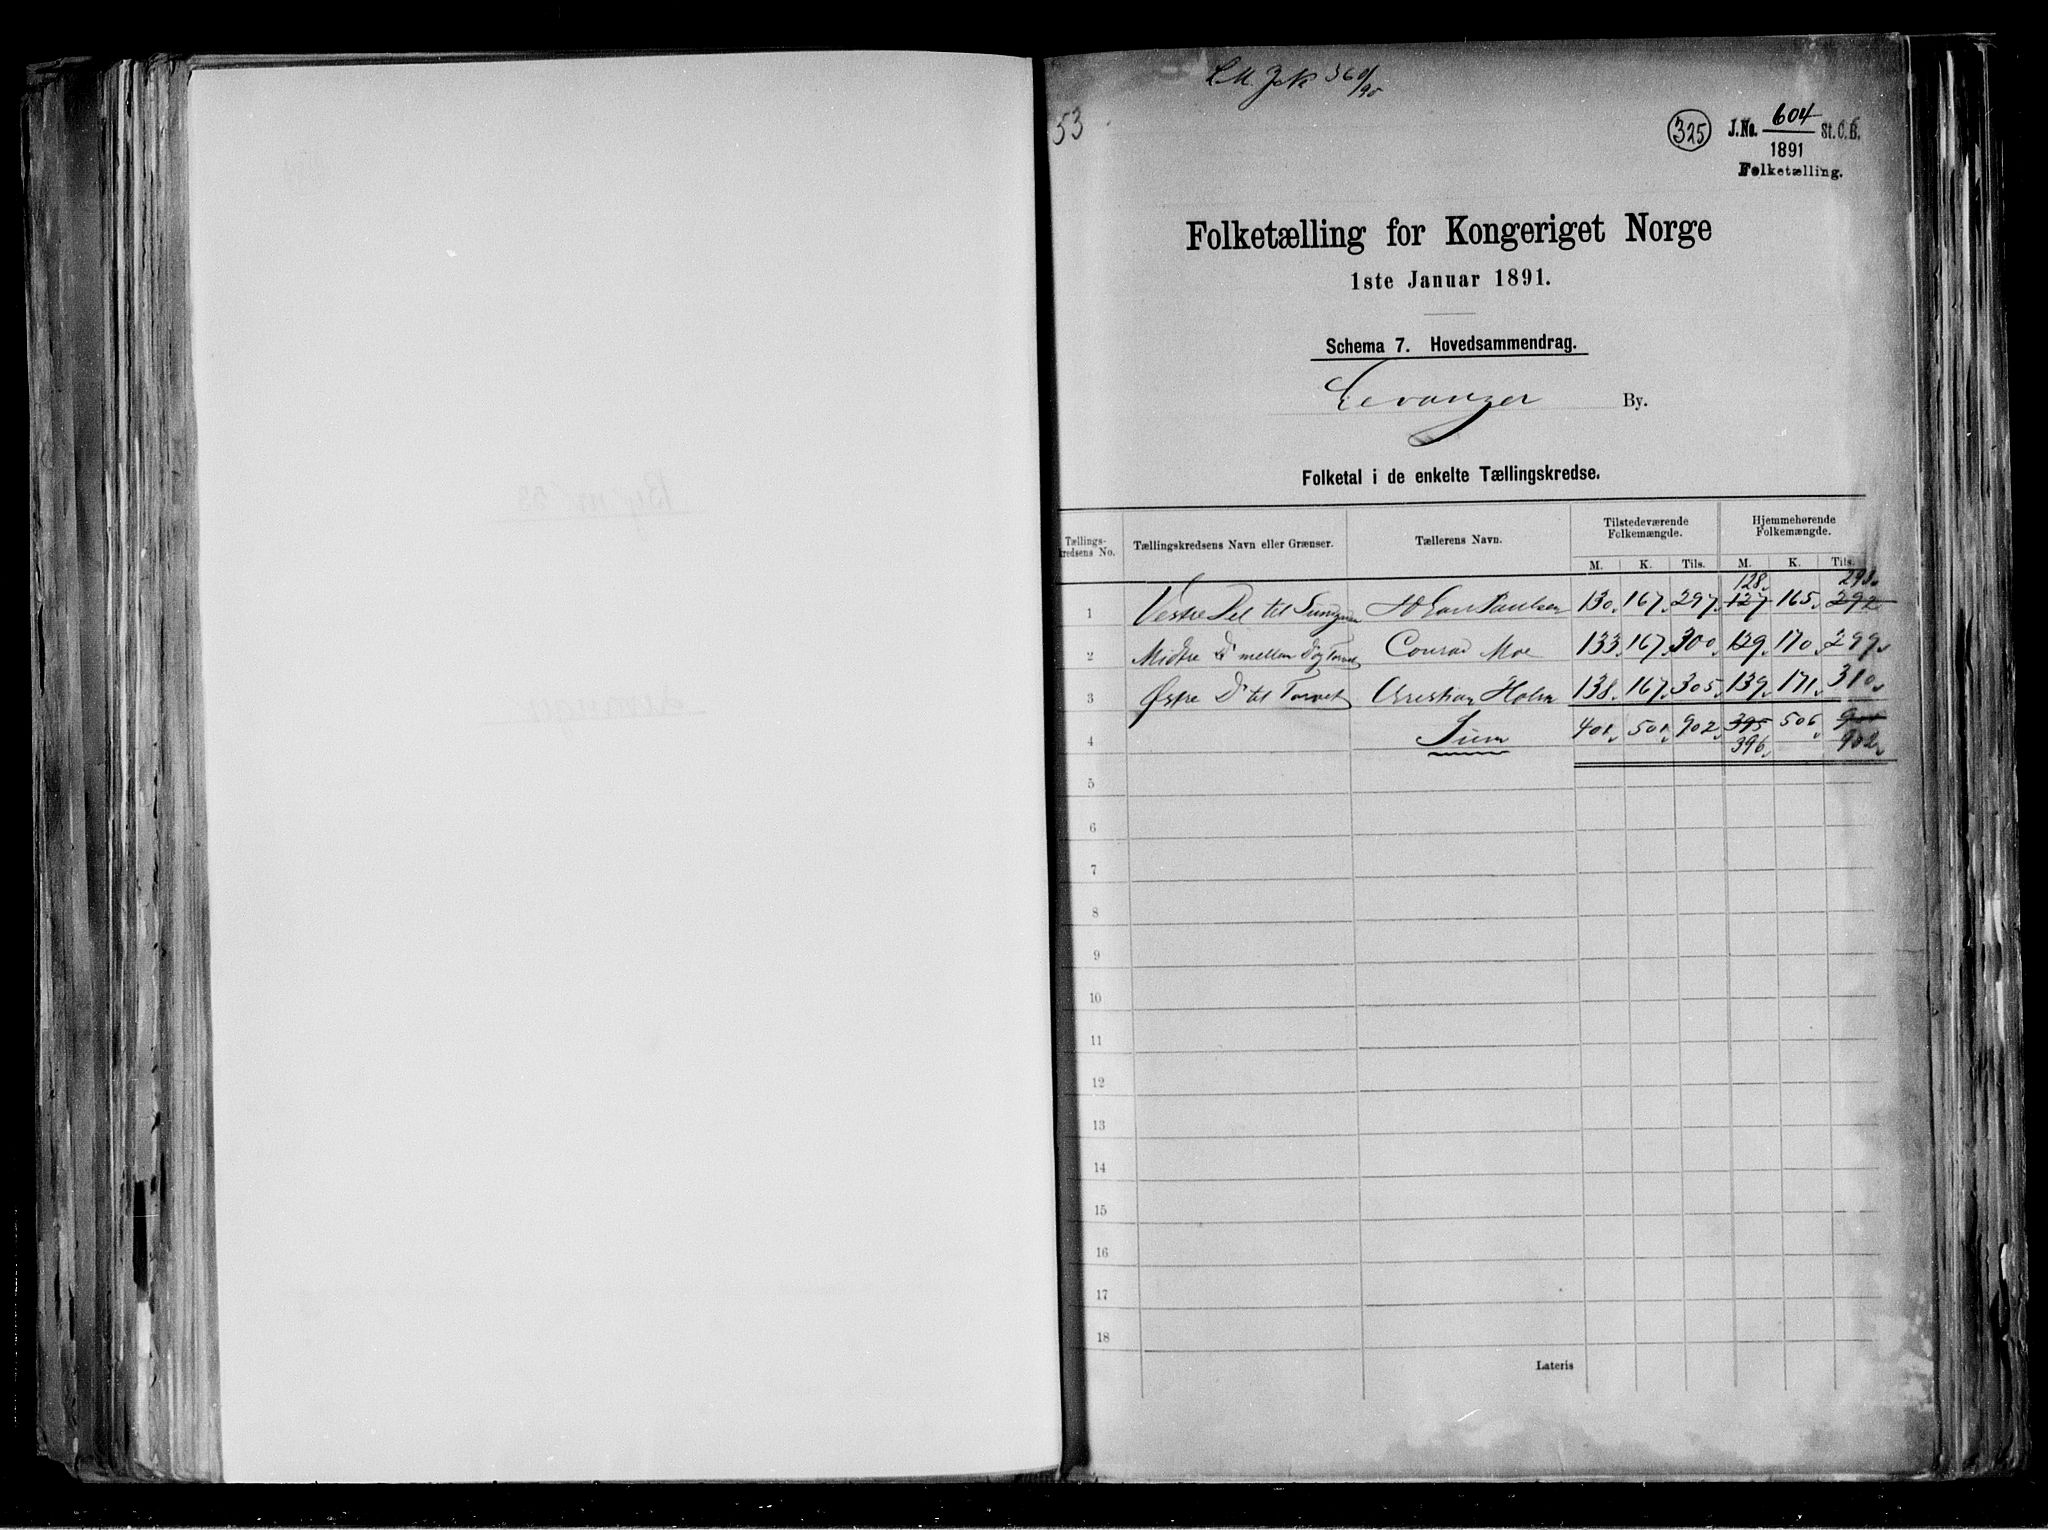 53
325
J.No. 604 St.C.B.
1891
Folketælling.
Folketælling for Kongeriget Norge
1ste Januar 1891.
Schema 7. Hovedsammendrag.
Levanger By.
Folketal i de enkelte Tællingskredse.
Tællings-kredsens No. Tællingskredsens Navn eller Grænser. Tællerens Navn. Tilstedeværende Folkemængde. Hjemmehørende Folkemængde.
M. K. Tils. M. K. Tils.
128. 293.
1 Vestre Del til Paulsen 130. 167. 297. 127 165. 292
2 Midtre D° mellem Conrad Moe 133. 167. 300. 129. 170. 299.
3 Østre D° til Torvet Christian Holm 138. 167. 305. 139. 171. 310.
4 Sum 401. 501. 902. 395 506.
396. 902.
5
6
7
8
9
10
11
12
13
14
15
16
17
18
Lateris